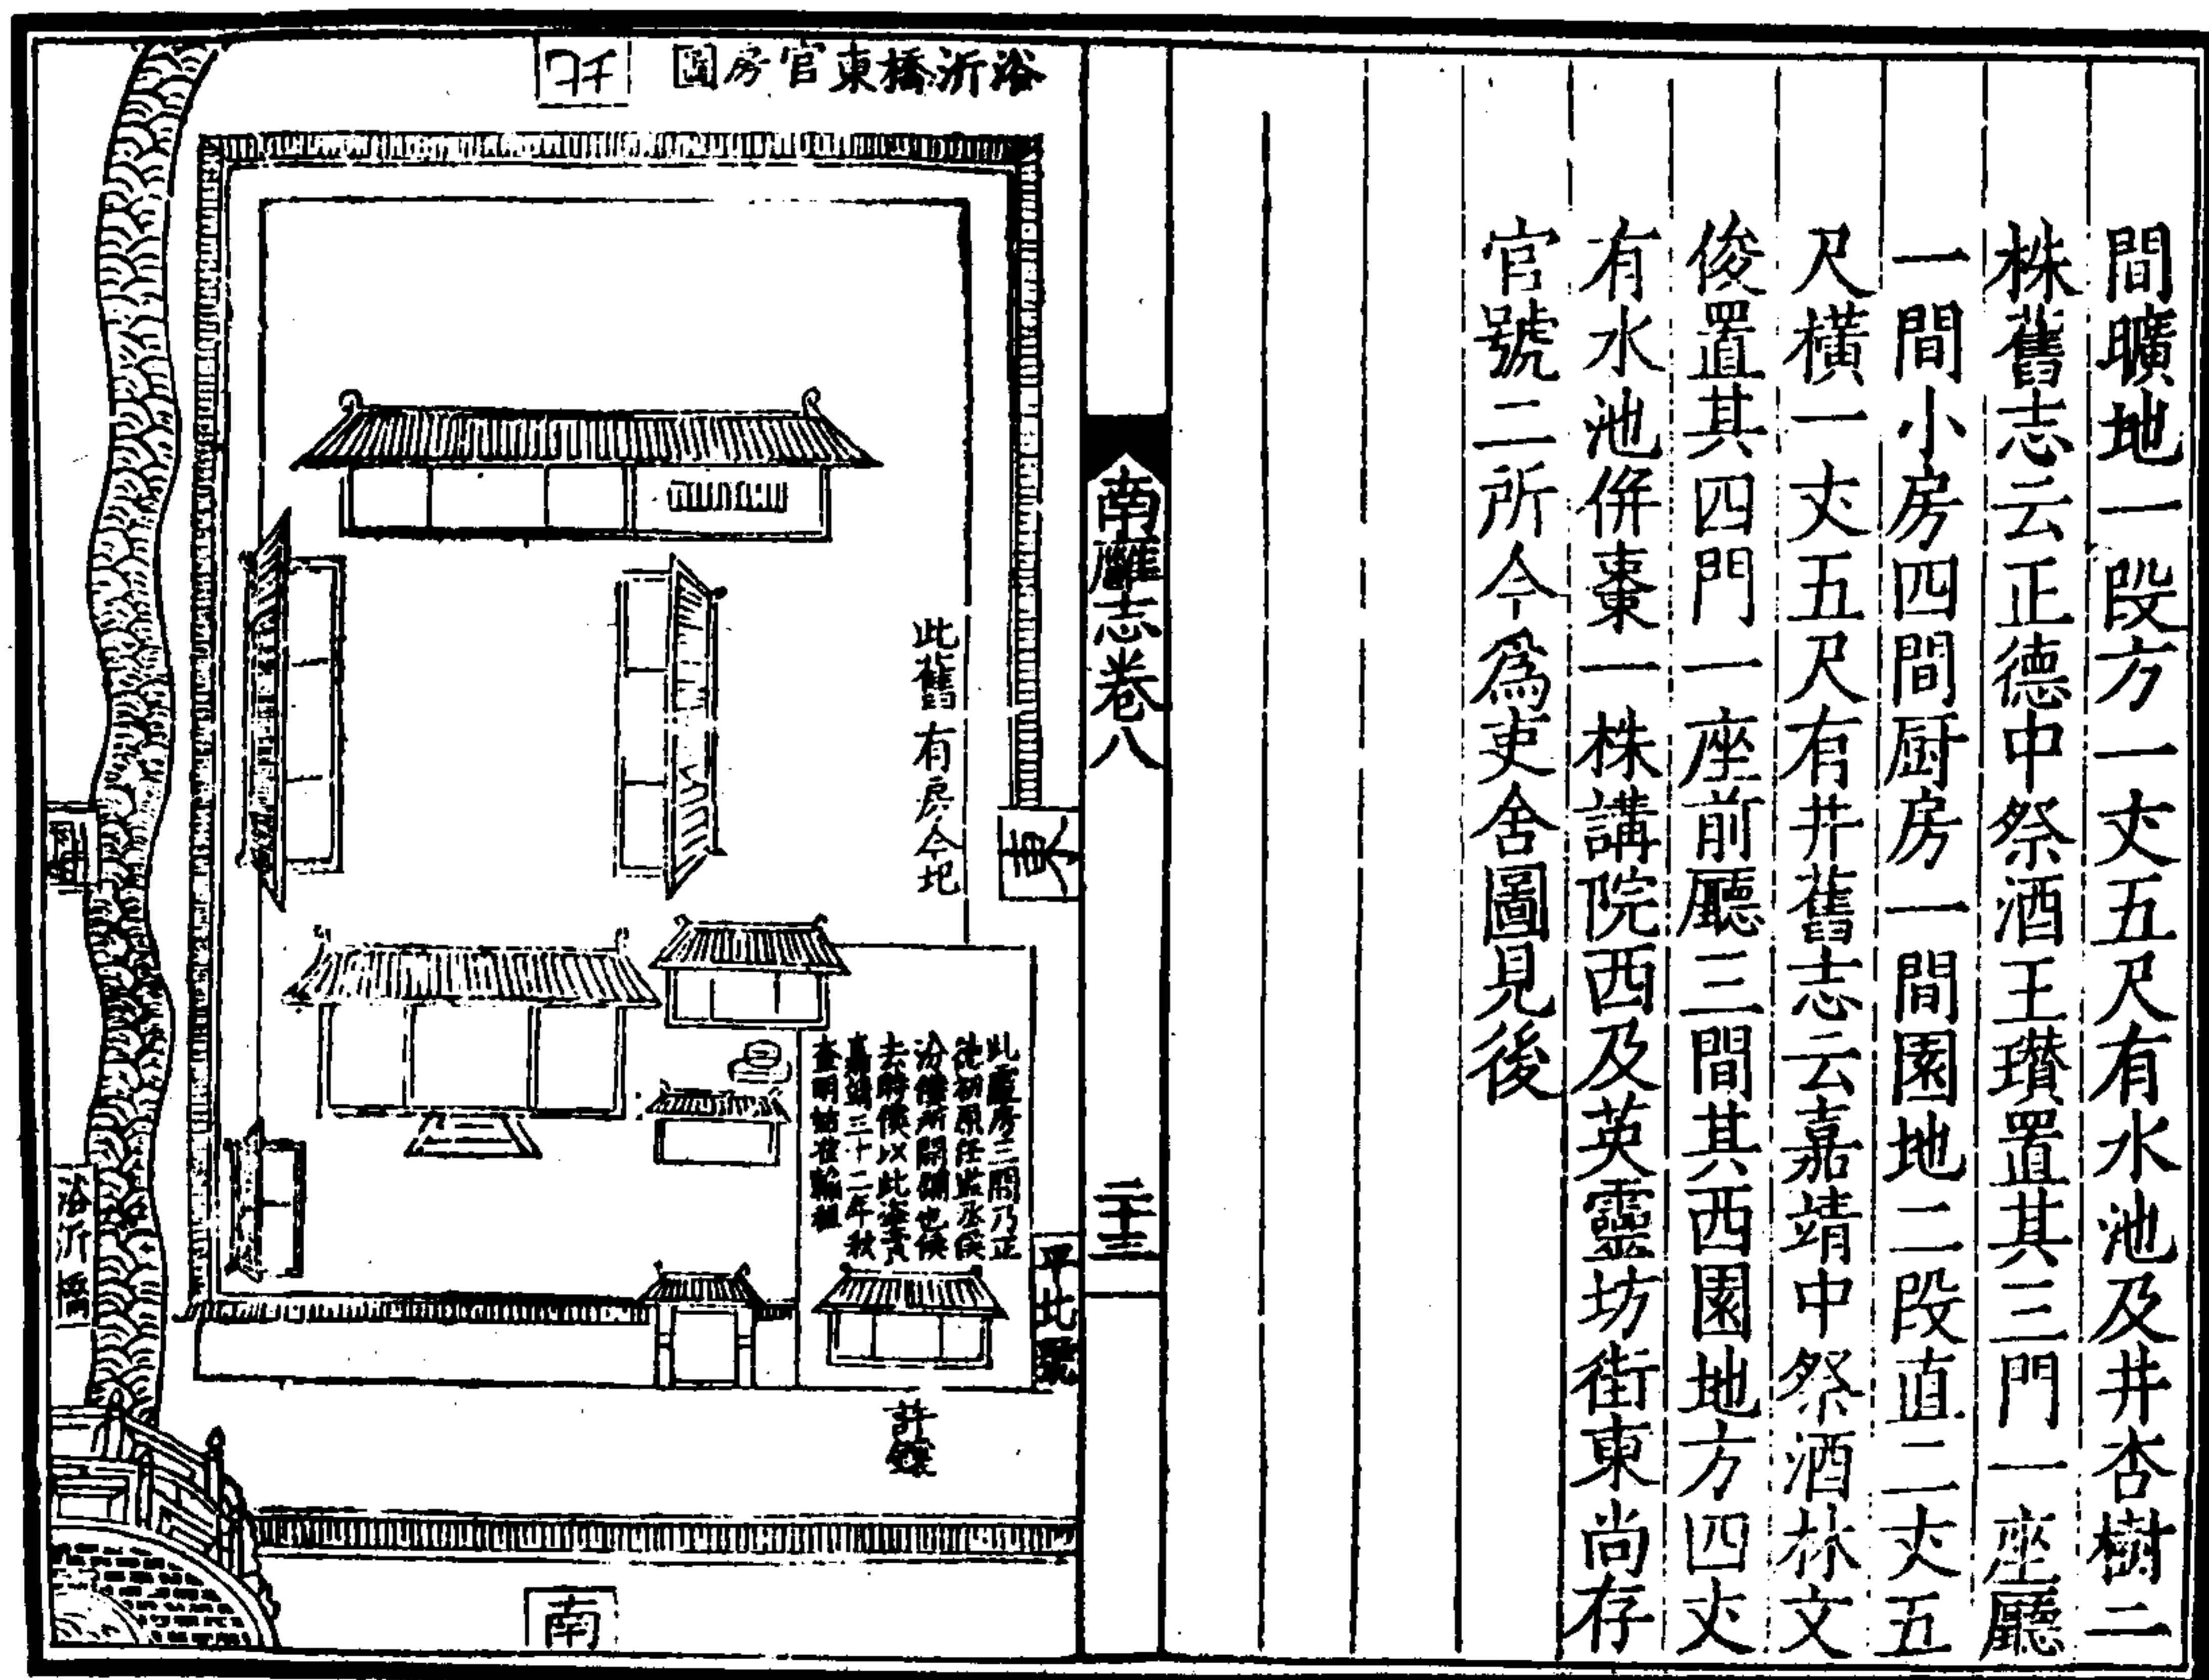 間曠地一段方一丈五尺有水池及井杏樹二
株舊志云正德中祭酒王瓚置其三門一座廳
一間小房四間厨房一間園地二段直二丈五
尺橫一丈五尺有井舊志云嘉靖中祭酒林文
俊置其四門一座前廳三間其西園地方四丈
有水池併棗一株講院西及英靈坊街東尚存
官號二所今爲吏舍圖見後
南廱志卷八
二十三
浴沂橋東官房圖
北
東
此舊有房今圮
此廳房三間乃正
德初原任監丞侯
汾僱所開鋪也侯
去時僕以此
嘉靖三十二年秋
查明
平北號
浴沂
南